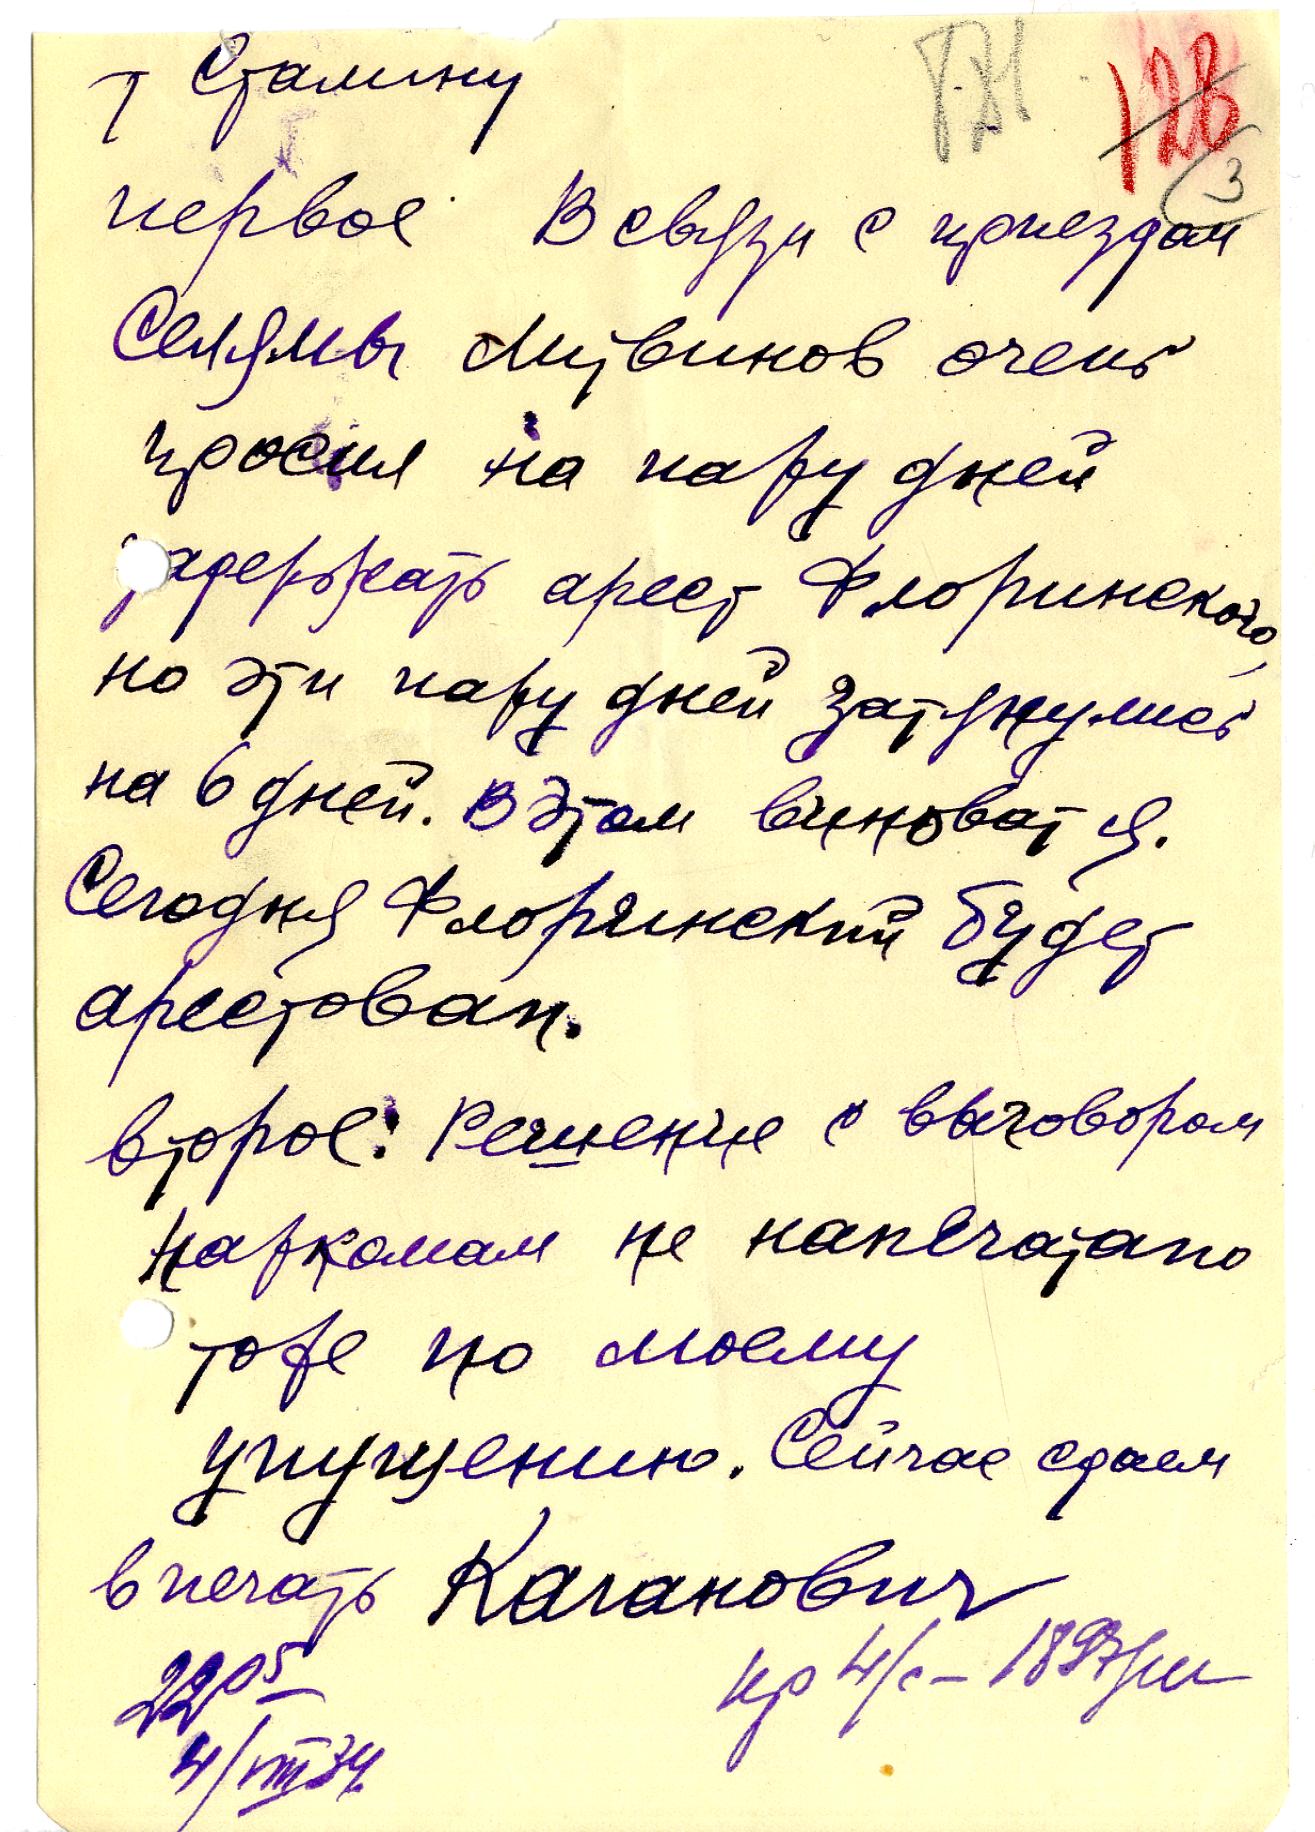 т Сталину
128
3
первое В связи с приездом
Селямы Литвинов очень
просил на пару дней
задержать арест Флоринского,
но эти пару дней затянулись
на 6 дней. В этом виноват я.
Сегодня Флоринский будет
арестован.
второе: Решение с выговором
наркомам не напечатано
тоже по моему
упущению. Сейчас сдаем
в печать Каганович
22 05
4/VIII 34